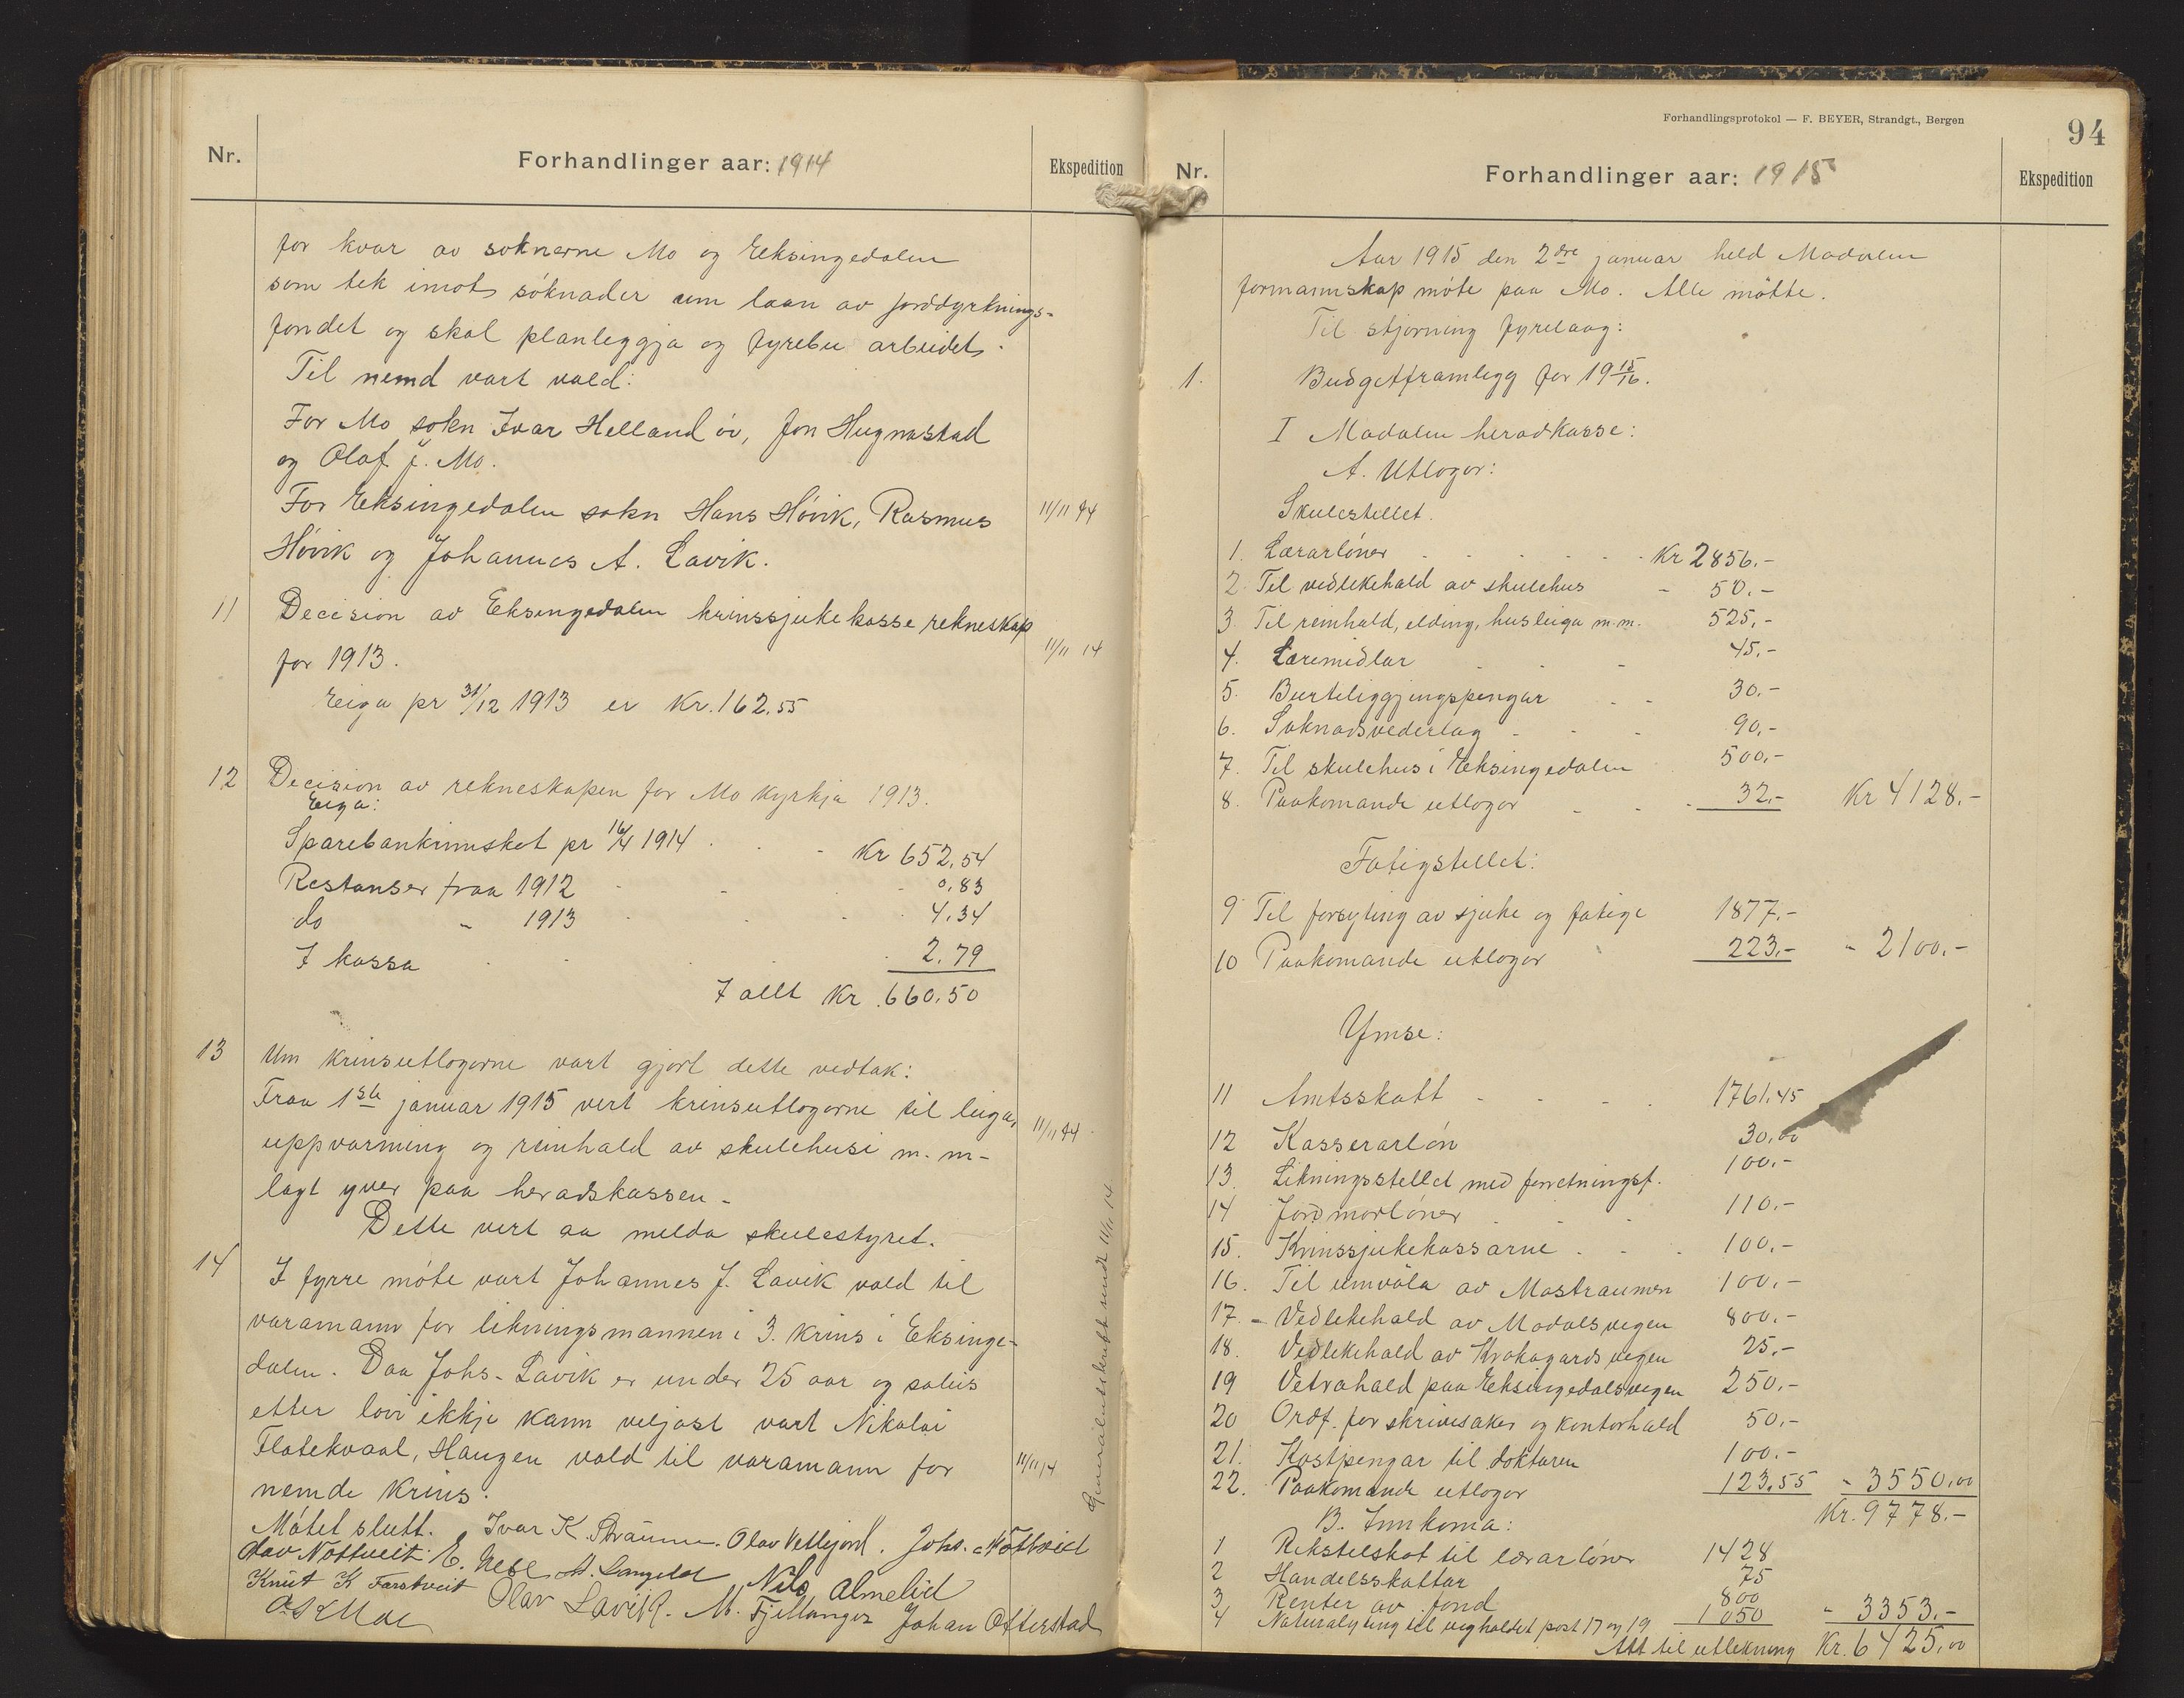 Nr.
Forhandlinger aar: 1914
Ekspedition
for kvar av soknerne Mo og Eksingedalen
som tek imot søknader um laan av jorddyrknings-
fondet og skal planleggja og fyrebu arbeidet.
Til nemd vart vald:
For Mo sokn Ivar Helland øv, Jon Hugnastad
og Olaf J. Mo.
For Eksingedalen sokn Hans Høvik, Rasmus
11/11 14
Høvik og Johannes A. Lavik.
11 Decision av Eksingedalen krinssjukekasse rekneskap
for 1913.
11/11 14
Eiga pr 31/12 1913 er Kr. 162.55
12 Decision av rekneskapen for Mo kyrkja 1913.
Eiga:
Sparebankinnskot pr 16/4 1914 . . - Kr 652,54
Restanser fraa 1912 - - - 0,83
do - 1913 - - - 4,34
I kassa - - - 2,79
I allt Kr. 660,50
13 Um krinsutlogorne vart gjort dette vedtak:
Fraa 1ste januar 1915 vert krinsutlogorne til leiga,
11/11 14
uppvarming og reinhald av skulehusi m. m-
lagt yver paa heradskassen -
Dette vert aa melda skulestyret.
14 I fyrre møte vart Johannes J. Lavik vald til
varamann for likningsmannen i 3. krins i Eksinge-
dalen. Daa Johs. Lavik er under 25 aar og soleis
etter lovi ikkje kann veljast vart Nikolai
Flatekvaal, Haugen vald til varamann for
11/11 14
nemde krins.
Møtet slutt. Ivar K. Straume. Olav Vetlejord. Johs. Nottveit
Olav Nottveit. E. Nese A. Langeld Nils Almelid
Knut K Farstveit Olav Lavik. M. Fjellanger Johan Otterstad
Generalutskrift sendt 11/11 14
Forhandlingsprotokol — F. BEYER, Strandgt., Bergen
94
Nr.
Forhandlinger aar: 1915
Ekspedition
Aar 1915 den 2dre januar held Modalen
formannskap møte paa Mo. Alle møtte.
Til stjorning fyrelaag:
1. Budgetframlegg for 19 15/16.
I Modalen heradkasse:
A. Utlogor:
Skulestellet.
1. Lærarløner - - - - - Kr 2856.-
2. Til vedlikehald av skulehus - 50.-
3. Til reinhald, elding, husleiga m.m. 525,-
4. Læremidlar - - - 45.-
5. Burteliggjingspengar - - 30.-
6. Soknadsvederlag - - - 90,-
7. Til skulehus i Eksingedalen 500,-
8. Paakomande utlogor - - - 32.- Kr 4128.-
Fatigstellet:
9 Til forsyting av sjuke og fatige 1877.-
10 Paakomande utlogor 223.- - 2100.-
Ymse:
11 Amtsskatt - - - - 1761.45
12 Kasserarløn 30,00
13. Likningsstellet med forretningsf. 100.-
14 Jordmorløner - - - 110.-
15. Krinssjukekassarne - - - 100.-
16. Til umvøla av Mostraumen 100.-
17. - Vedlikehald av Modalsvegen 800.-
18. Vedlikehald av Krakagardsvegen 25.-
19 Vetrahald paa Eksingedalsvegen 250.-
20 Ordf. for skrivesaker og kontorhald 50.-
21. Kostpengar til doktaren 100.-
22. Paakomande utlogor 123.55 - 3550,00
Kr. 9778.-
B. Innkoma:
1 Rikstilskot til lærarløner 1428
2 Handelsskattar 75
3 Renter av fond 800
4 Naturalyting til veghaldet post 17 og 19 1050 - 3353.-
Att til utlikning Kr. 6425,00